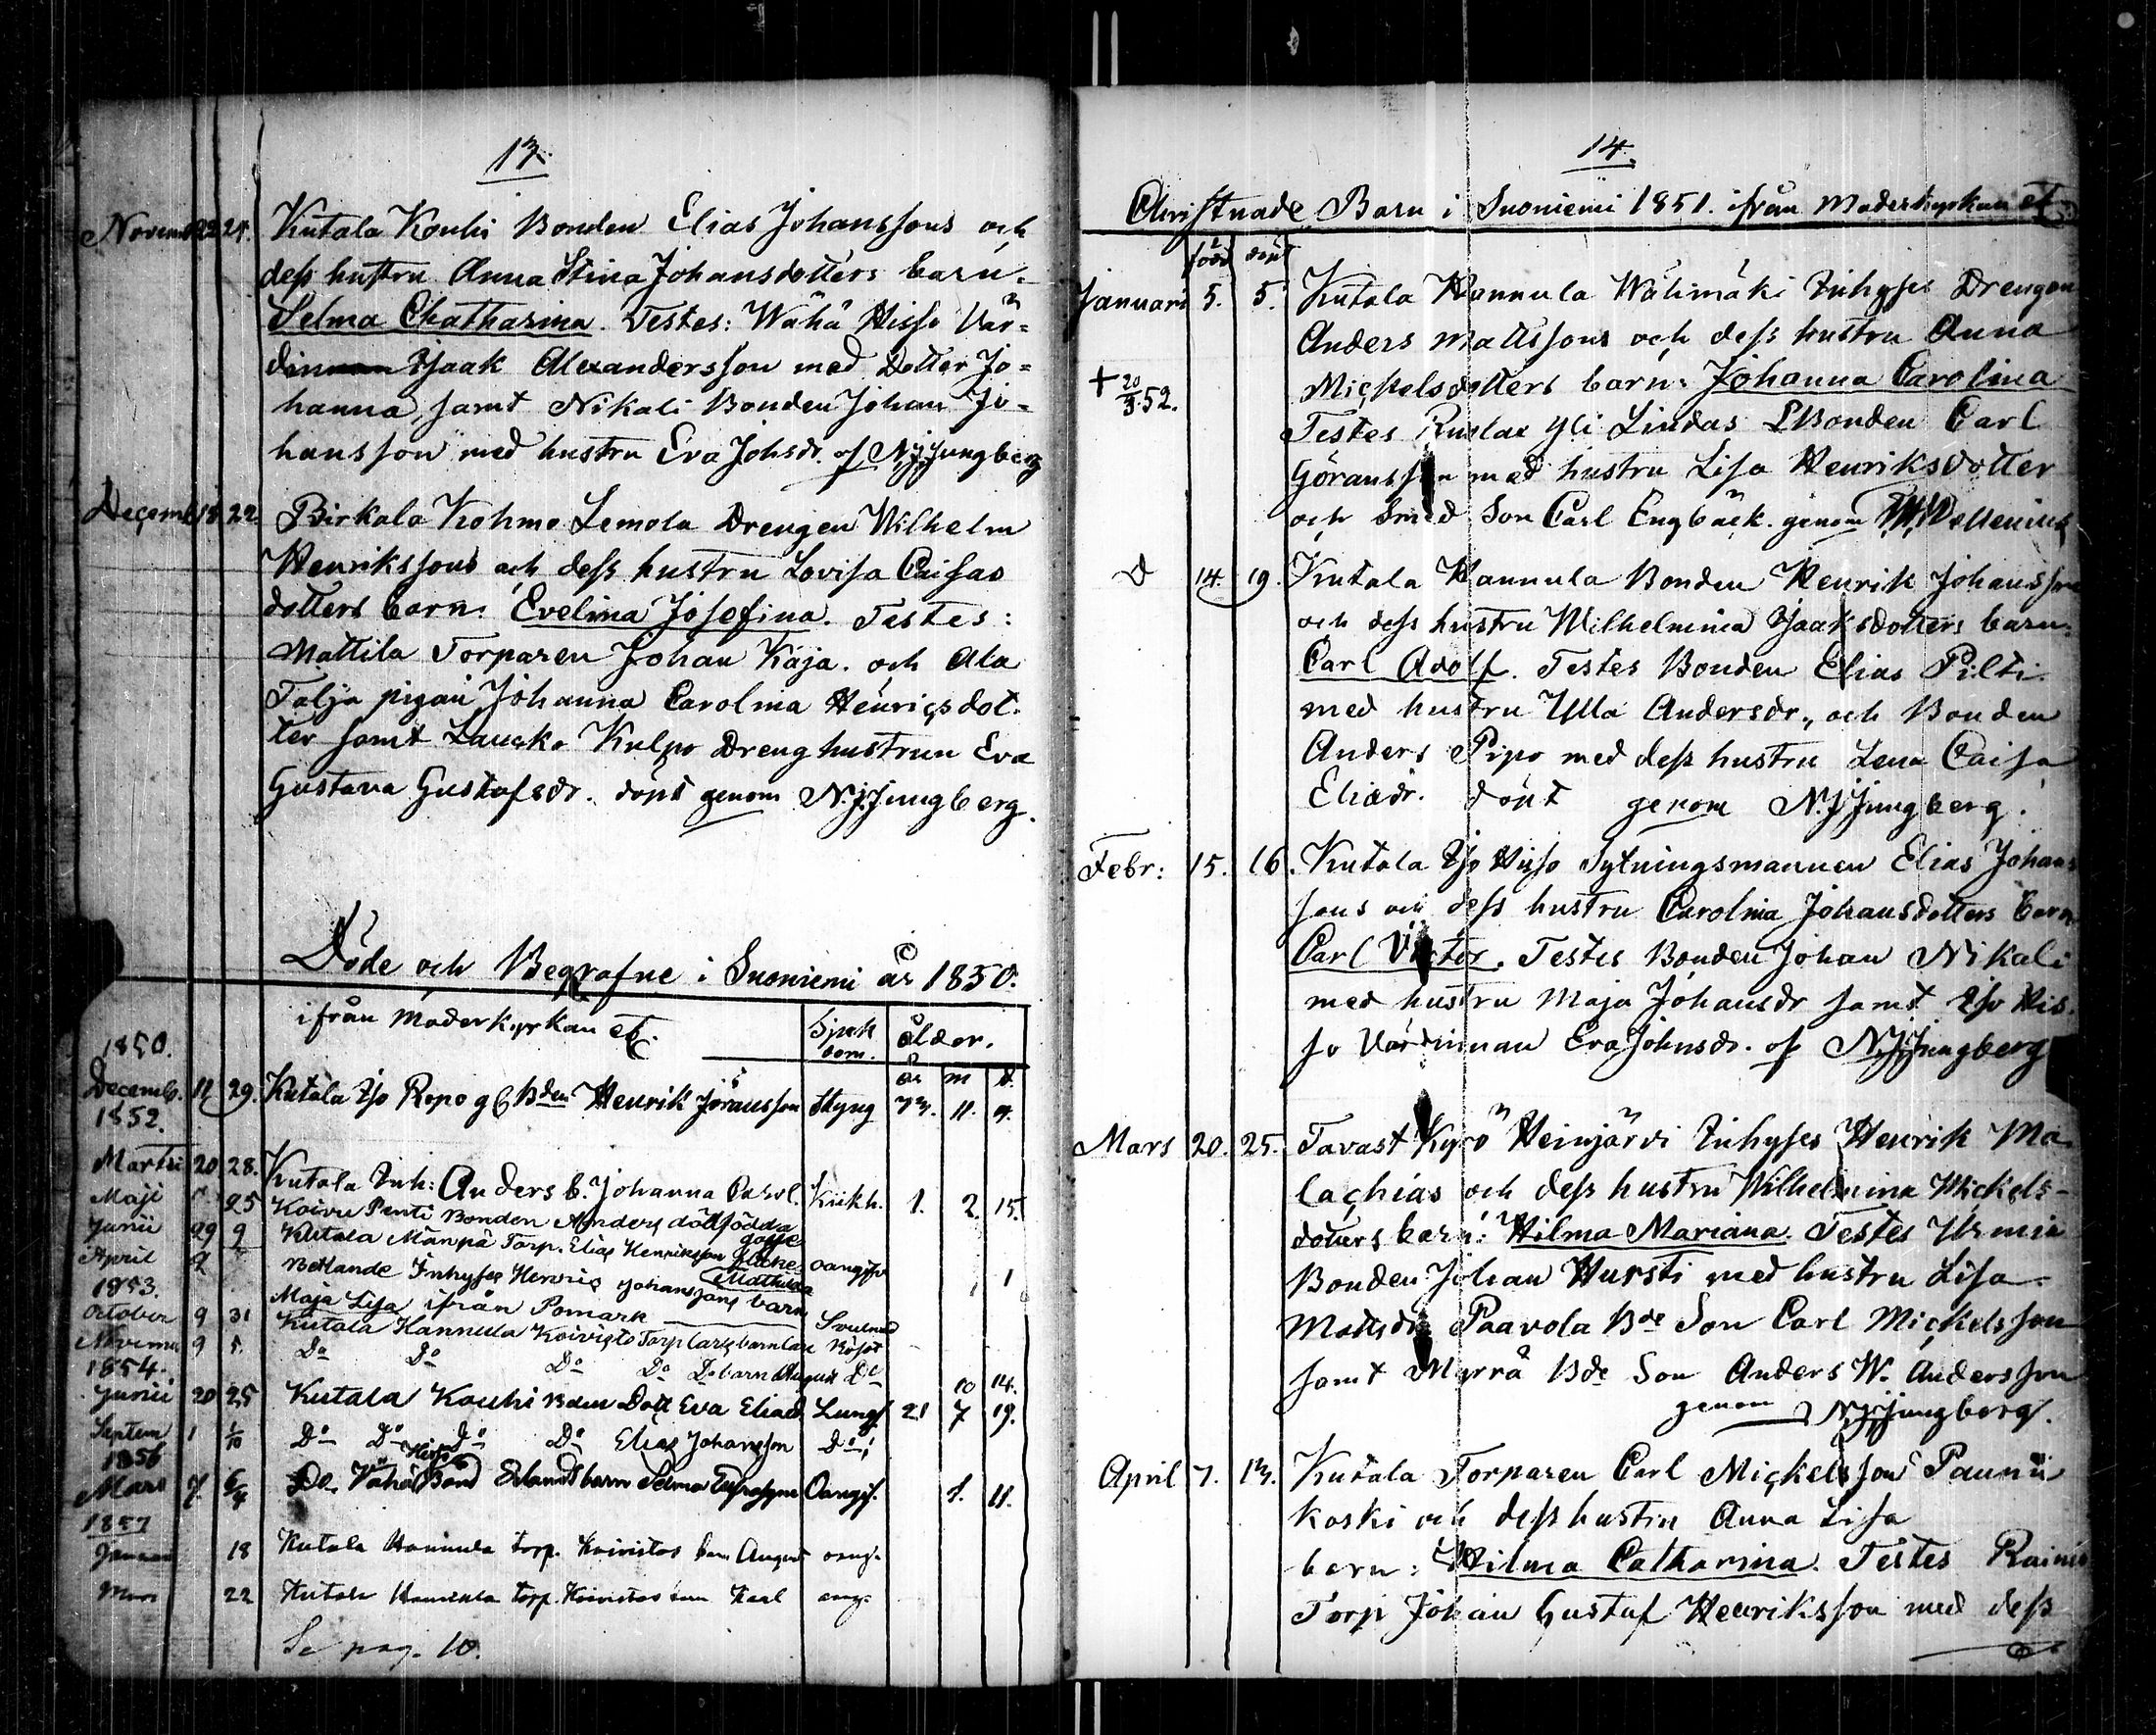 13.
Novemb 22 25. Kutala Kouhi Bonden Elias Johanssons och
dess hustru Anna Stina Johansdotters barn.
Selma Chatharina. Testes: Wähä Hisso Vär=
dinnan Isaak Alexandersson med Dotter Jo=
hanna samt Nikali Bonden Johan Jo=
hansson med hustru Eva Johsdr. af N.J.Jungberg
Decemb 18 22. Birkala Kohmo Lemola Drengen Wilhelm
Henrikssons och dess hustru Lovisa Caisas
dotters barn. Evelina Josefina. Testes:
Mattila Torparen Johan Kaja. och Ala
Talja pigan Johanna Carolina Henricsdot=
ter samt Laucko Kulpo Dreng hustrun Eva
Gustava Gustafsdr. döpt genom N.J.Jungberg.
Döde och Begrafne i Suoniemi år 1850.
ifrån Moderkyrkan etc. Sjuk dom. ålder.
1850. år m d.
Decemb. 11 29. Kutala Iso Repo gl Bden Henrik Göransson Styng 73. 11. 9.
1852.
Martii 20 28. Kutala Inh: Anders b. Johanna Carol. Kikh. 1. 2. 15.
Maji 25 Koivu Penti Bonden Anders dödfödda gosse
Junii 29 9 Kutala Mänpä Torp. Elias Henriksson oangifv
April 2 Betlande Inhyses Henric Johanssons barn Mathilda 1
1853. Maja Lisa ifrån Pomark
October 9 31 Kutala Hannula Koivisto Torp Carls barn Rösot
Novemb 9 5. Do Do Do Do Do barn August Do
1854. 10 14.
Junii 20 25 Kutala Kouhi Bdens Dott Eva Eliasd. Lungs 21 7 19.
Septem 1 1/10 Do Do Do Do Elias Johansson Do
1856
Mars 7. 6/4 Do Vähä Hisso Bond barn Selma Oangif. 1. 11.
1857
Januari 18 Kutala Hannula torp. Koivistos barn August oang.
Mars 22 Kutala Hannula torp. Koivistos son Karl ang.
Se pag. 10.
14.
Christnade Barn i Suoniemi 1851. ifrån Moderkyrkan etc.
född döpt
Januari 5. 5. Kutala Hannula Wälimäki Inhyses Drengen
Anders Mattssons och dess hustru Anna
+ 20/3.52. Mickelsdotters barn: Johanna Carolina
Testes Yli Lindas Bonden Carl
Göransson med hustru Lisa Henriksdotter
och Smed Son Carl Engbäck. genom
D 14. 19. Kutala Hannula Bonden Henrik Johansson
och dess hustru Wilhelmina Isaksdotters barn:
Carl Adolf. Testes Bonden Elias Pilti
med hustru Ulla Andersdr., och Bonden
Anders Pipo med dess hustru Lena Caisa
Eliasdr. döpt genom N.J.Jungberg.
Febr: 15. 16. Kutala Iso Hisso Sytningsmannen Elias Johans
sons och dess hustru Carolina Johansdotters barn
Carl Victor. Testes Bonden Johan Nikali
med hustru Maja Johansdr samt Iso His
so Värdinnan Eva Johnsdr. af N.J.Jungberg
Mars 20. 25. Tavast Kyrö Heinjärvi Inhyses Henrik Ma
lachias och dess hustru Wilhelmina Mickels-
dotters barn: Hilma Mariana. Testes Urmia
Bonden Johan Hursti med hustru Lisa
Mattsdr Paavola Bde Son Carl Mickelsson
samt Myrrä Bde Son Anders W. Andersson
genom N.J.Jungberg.
April 7. 13. Kutala Torparen Carl Mickelsson Pannu
koski och dess hustru Anna Lisa
barn: Hilma Catharina. Testes
Torp Johan Gustaf Henriksson med dess